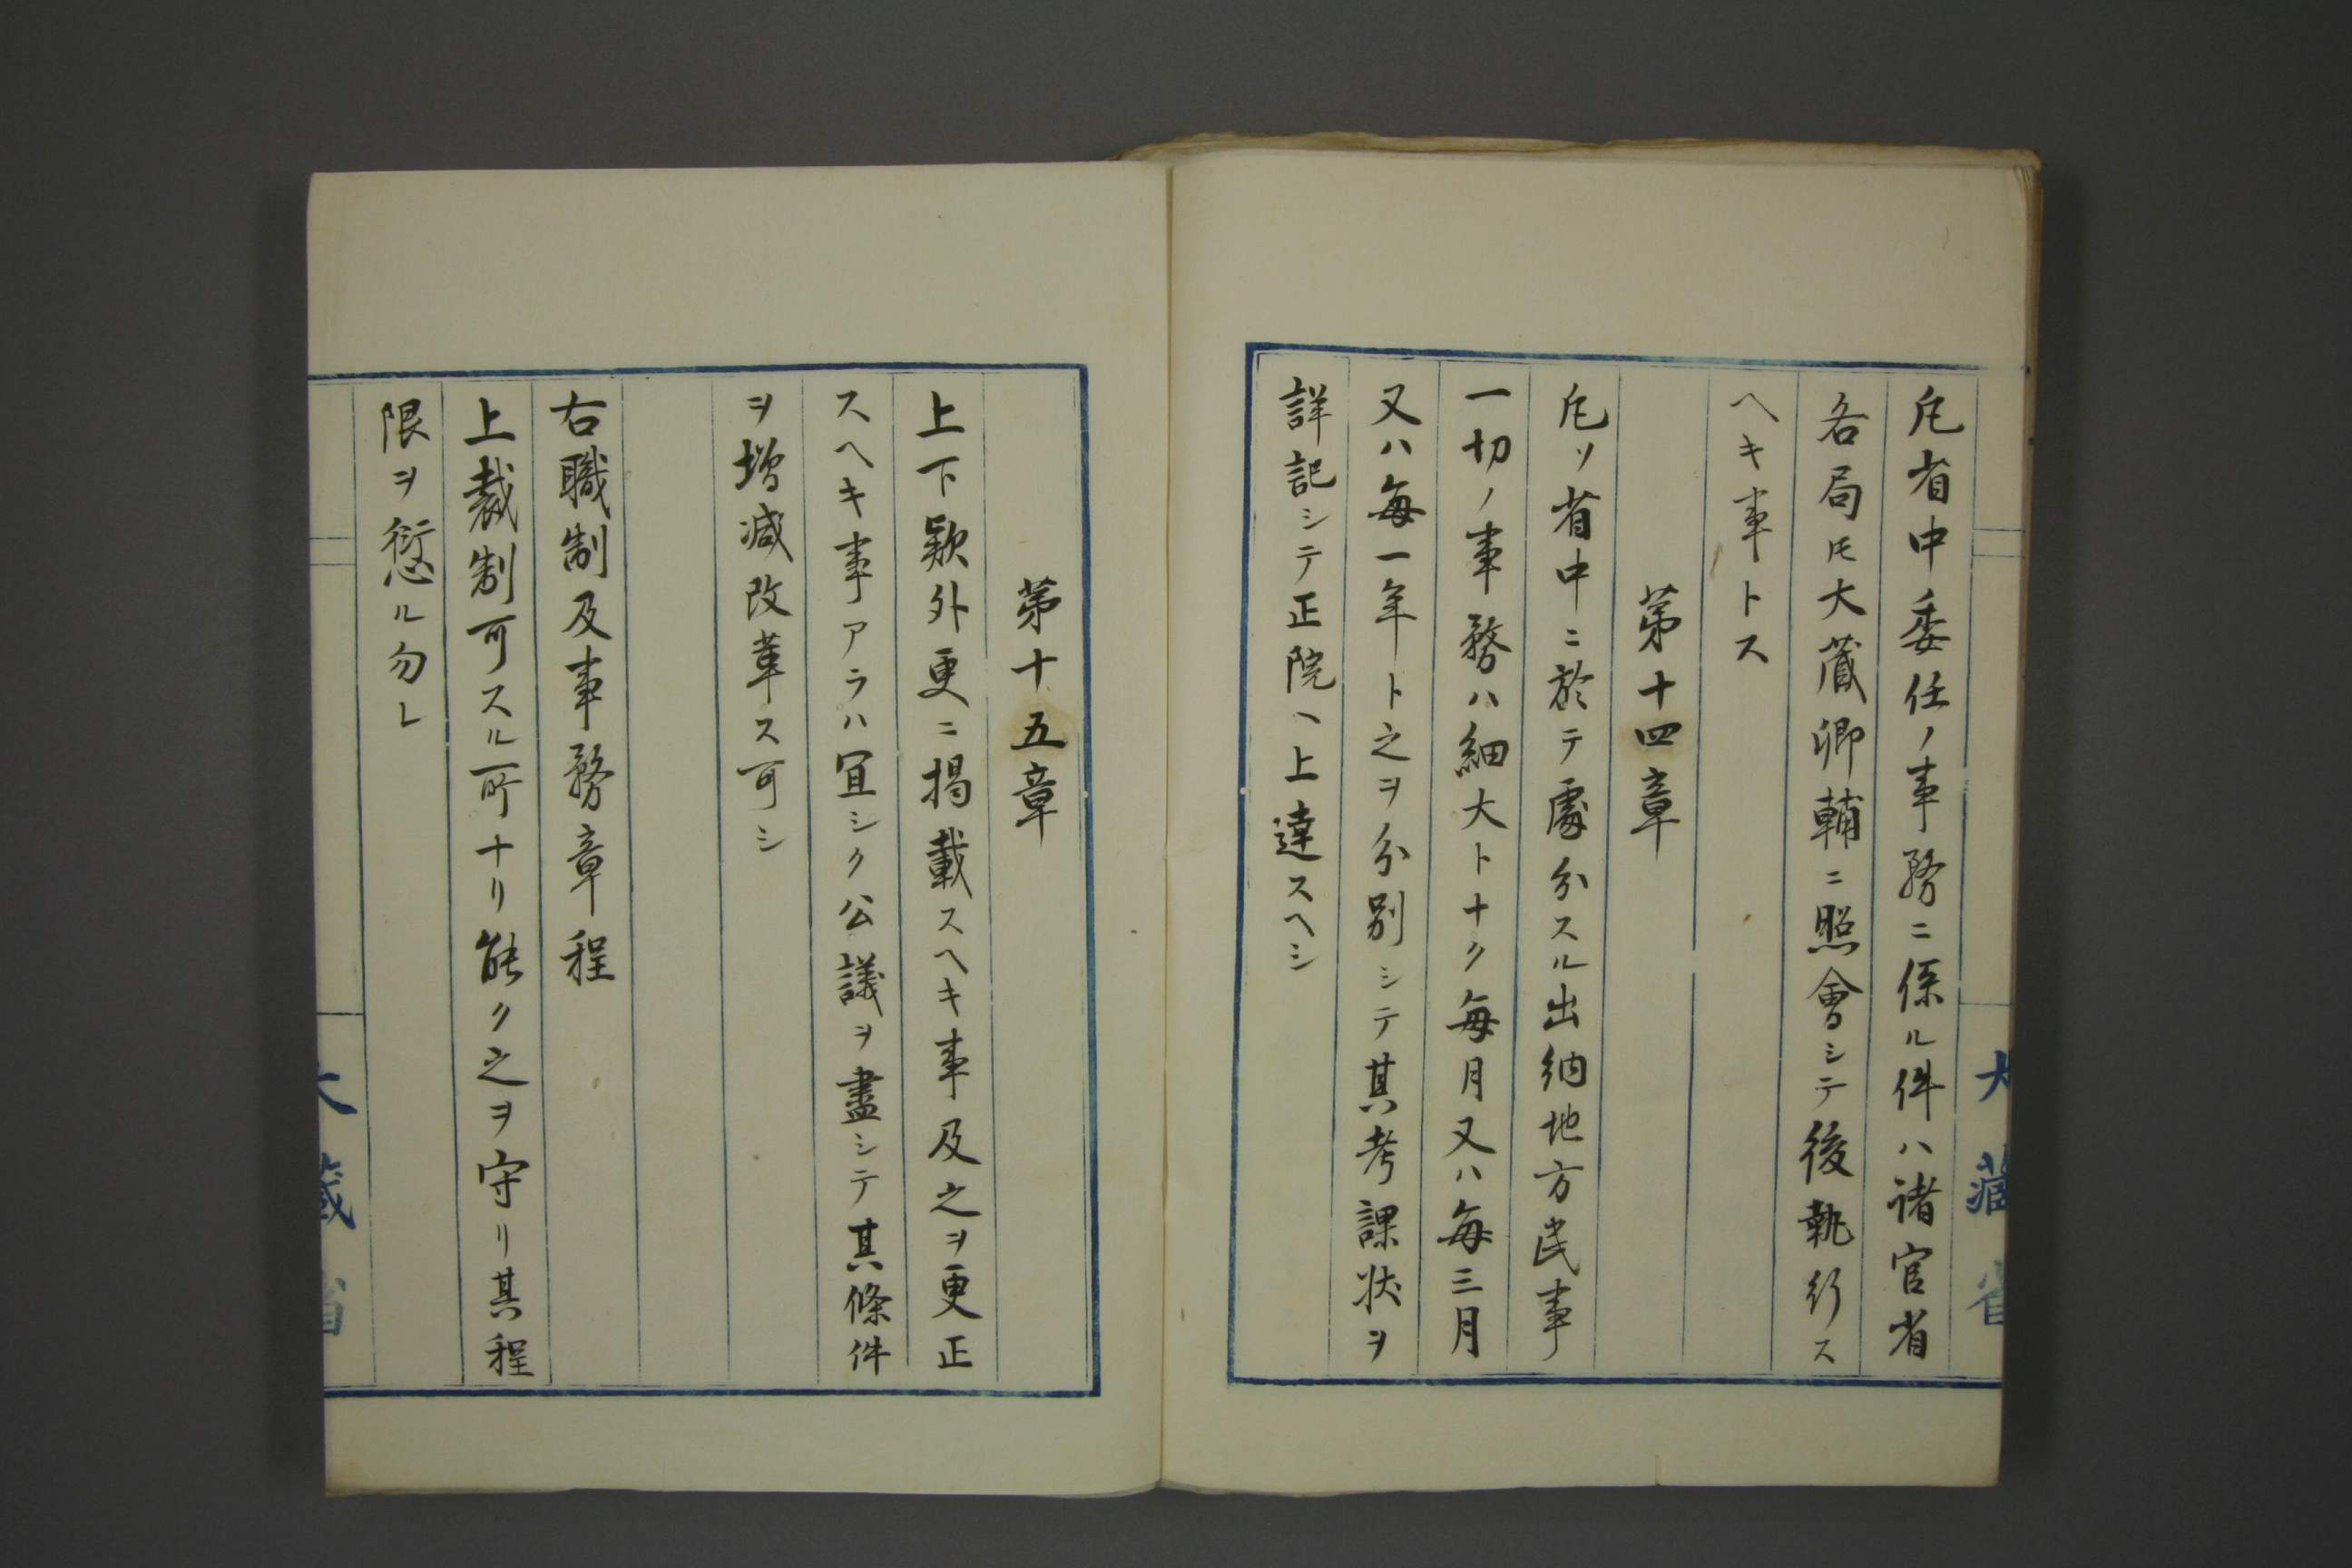 大藏省
凡省中委任ノ事務ニ係ル件ハ諸官省
各局ヨリモ大藏卿輔ニ照會シテ後執行ス
ヘキ事トス
第十四章
凡ソ省中ニ於テ處分スル出納地方民事
一切ノ事務ハ細大トナク每月又ハ每三月
又ハ每一年ト之ヲ分別シテ其考課狀ヲ
詳記シテ正院ヘ上達スヘシ
第十五章
上下款外更ニ揭載スヘキ事及之ヲ更正
スヘキ事アラハ宜シク公議ヲ盡シテ其條件
ヲ增減改革ス可シ
右職制及事務章程
上裁制可スル所ナリ能ク之ヲ守リ其程
限ヲ愆ル勿レ
大藏省